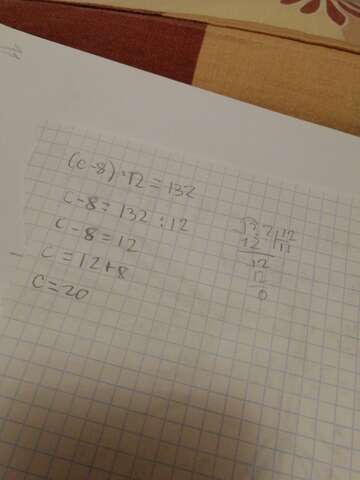 (c-8)·12=132
c-8=132:12
c-8=12
c=12+8
c=20
132|12
12 11
12
12
0